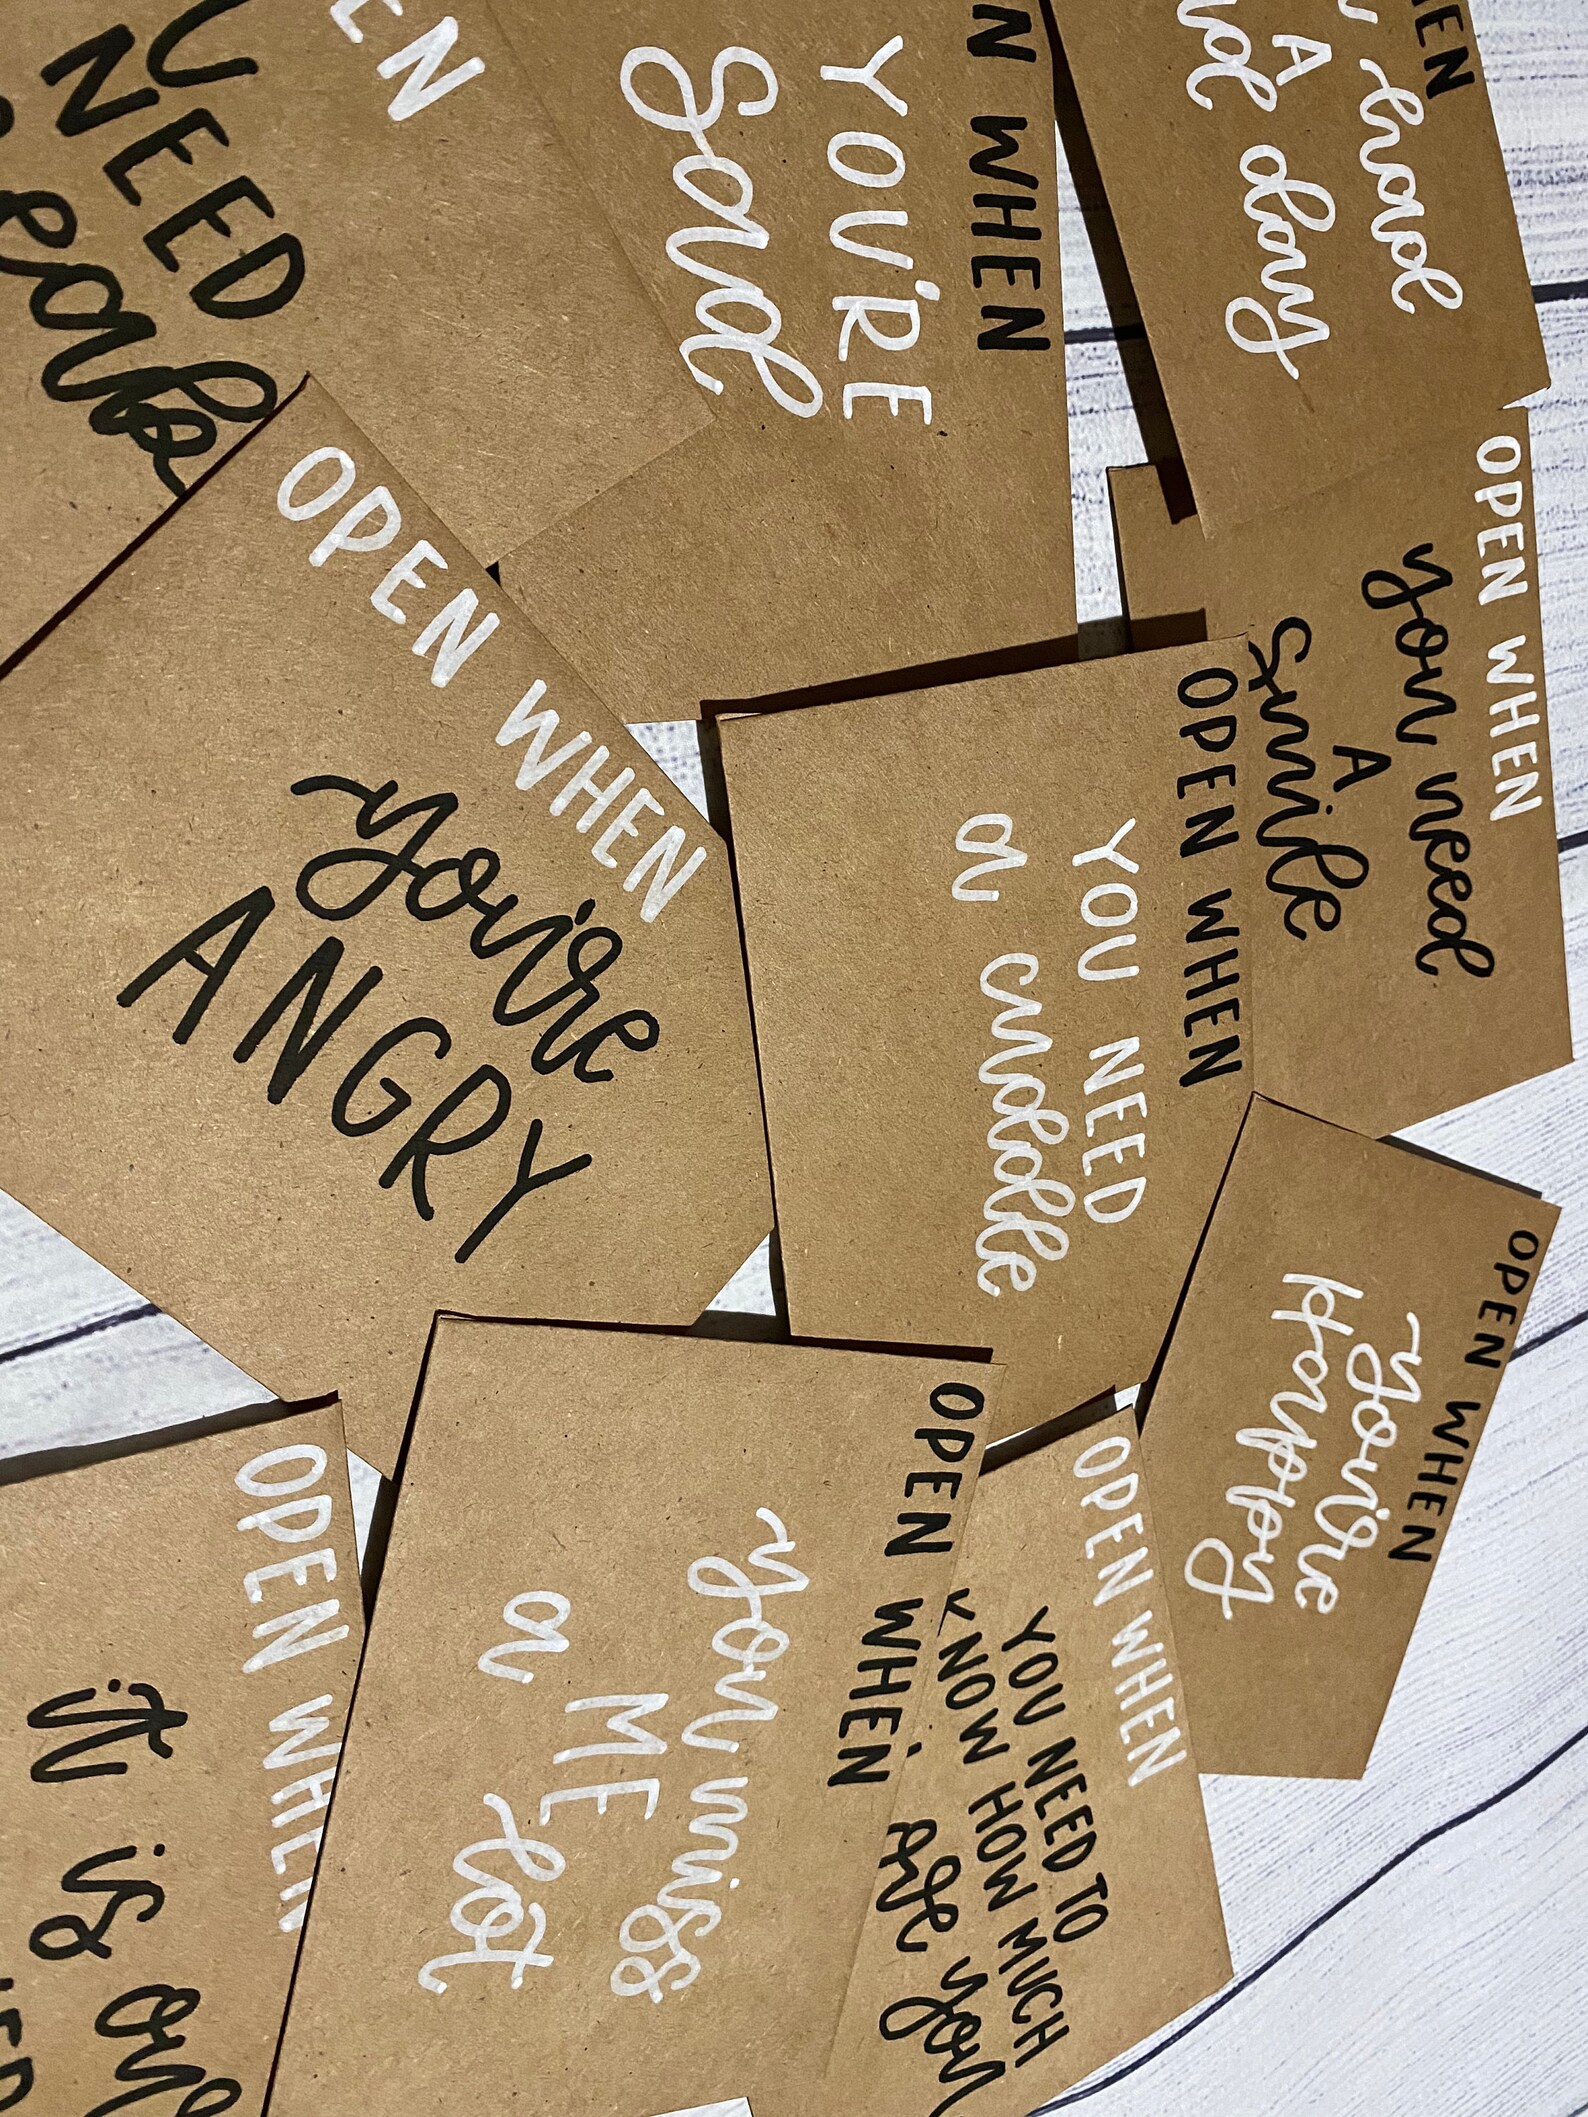 NEED
EN
N WHEN
YOU'RE
Sad
HEN
had
A day
OPEN WHEN
you need
A
smile
OPEN WHEN
you're
ANGRY
OPEN WHEN
YOU NEED
a cuddle
OPEN WHEN
you're
Happy
OPEN WHEN
you miss
ME
a lot
OPEN WHEN
YOU NEED TO
KNOW HOW MUCH
you
OPEN WHEN
it is